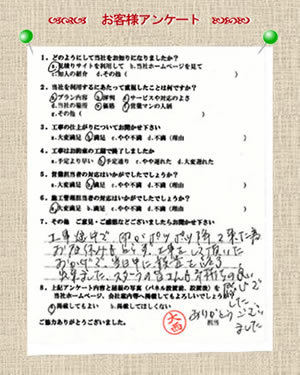 お客様アンケート
1. どのようにして当社をお知りになりましたか？
a.見積りサイトを利用して b.当社ホームページを見て
c.知人の紹介 d.その他（ ）
2. 当社を利用するにあたって重視したことは何ですか？
a.プラン内容 b.評判 c.サービスや対応のよさ
d.当社の場所 e.価格 f.営業マンの人柄
g.その他（ ）
3. 工事の仕上がりについてお聞かせ下さい
a.大変満足 b.満足 c.やや不満 d.不満（理由 ）
4. 工事はお約束の工期で完了しましたか
a.予定より早い b.予定通り c.やや遅れた d.大変遅れた
5. 営業担当者の対応はいかがでしたでしょうか？
a.大変満足 b.満足 c.やや不満 d.不満（理由 ）
6. 施工管理担当者の対応はいかがでしたでしょうか？
a.大変満足 b.満足 c.やや不満 d.不満（理由 ）
7. その他 ご意見・ご感想などございましたらお聞かせ下さい
工事途中で 雨がポツポツ降って来た為
お昼休みもとらず、工事をして頂いた
おかげで、当日中に
出来ました。スタッフの皆さんも気持ちの良い
8. 上記アンケート内容と経緯の写真（パネル設置前、設置後）を
当社ホームページ、会社案内等へ掲載してもよろしいでしょうか
a.掲載してもよい b.掲載してほしくない
ありがとうございました
ご協力ありがとうございました。
担当
大西